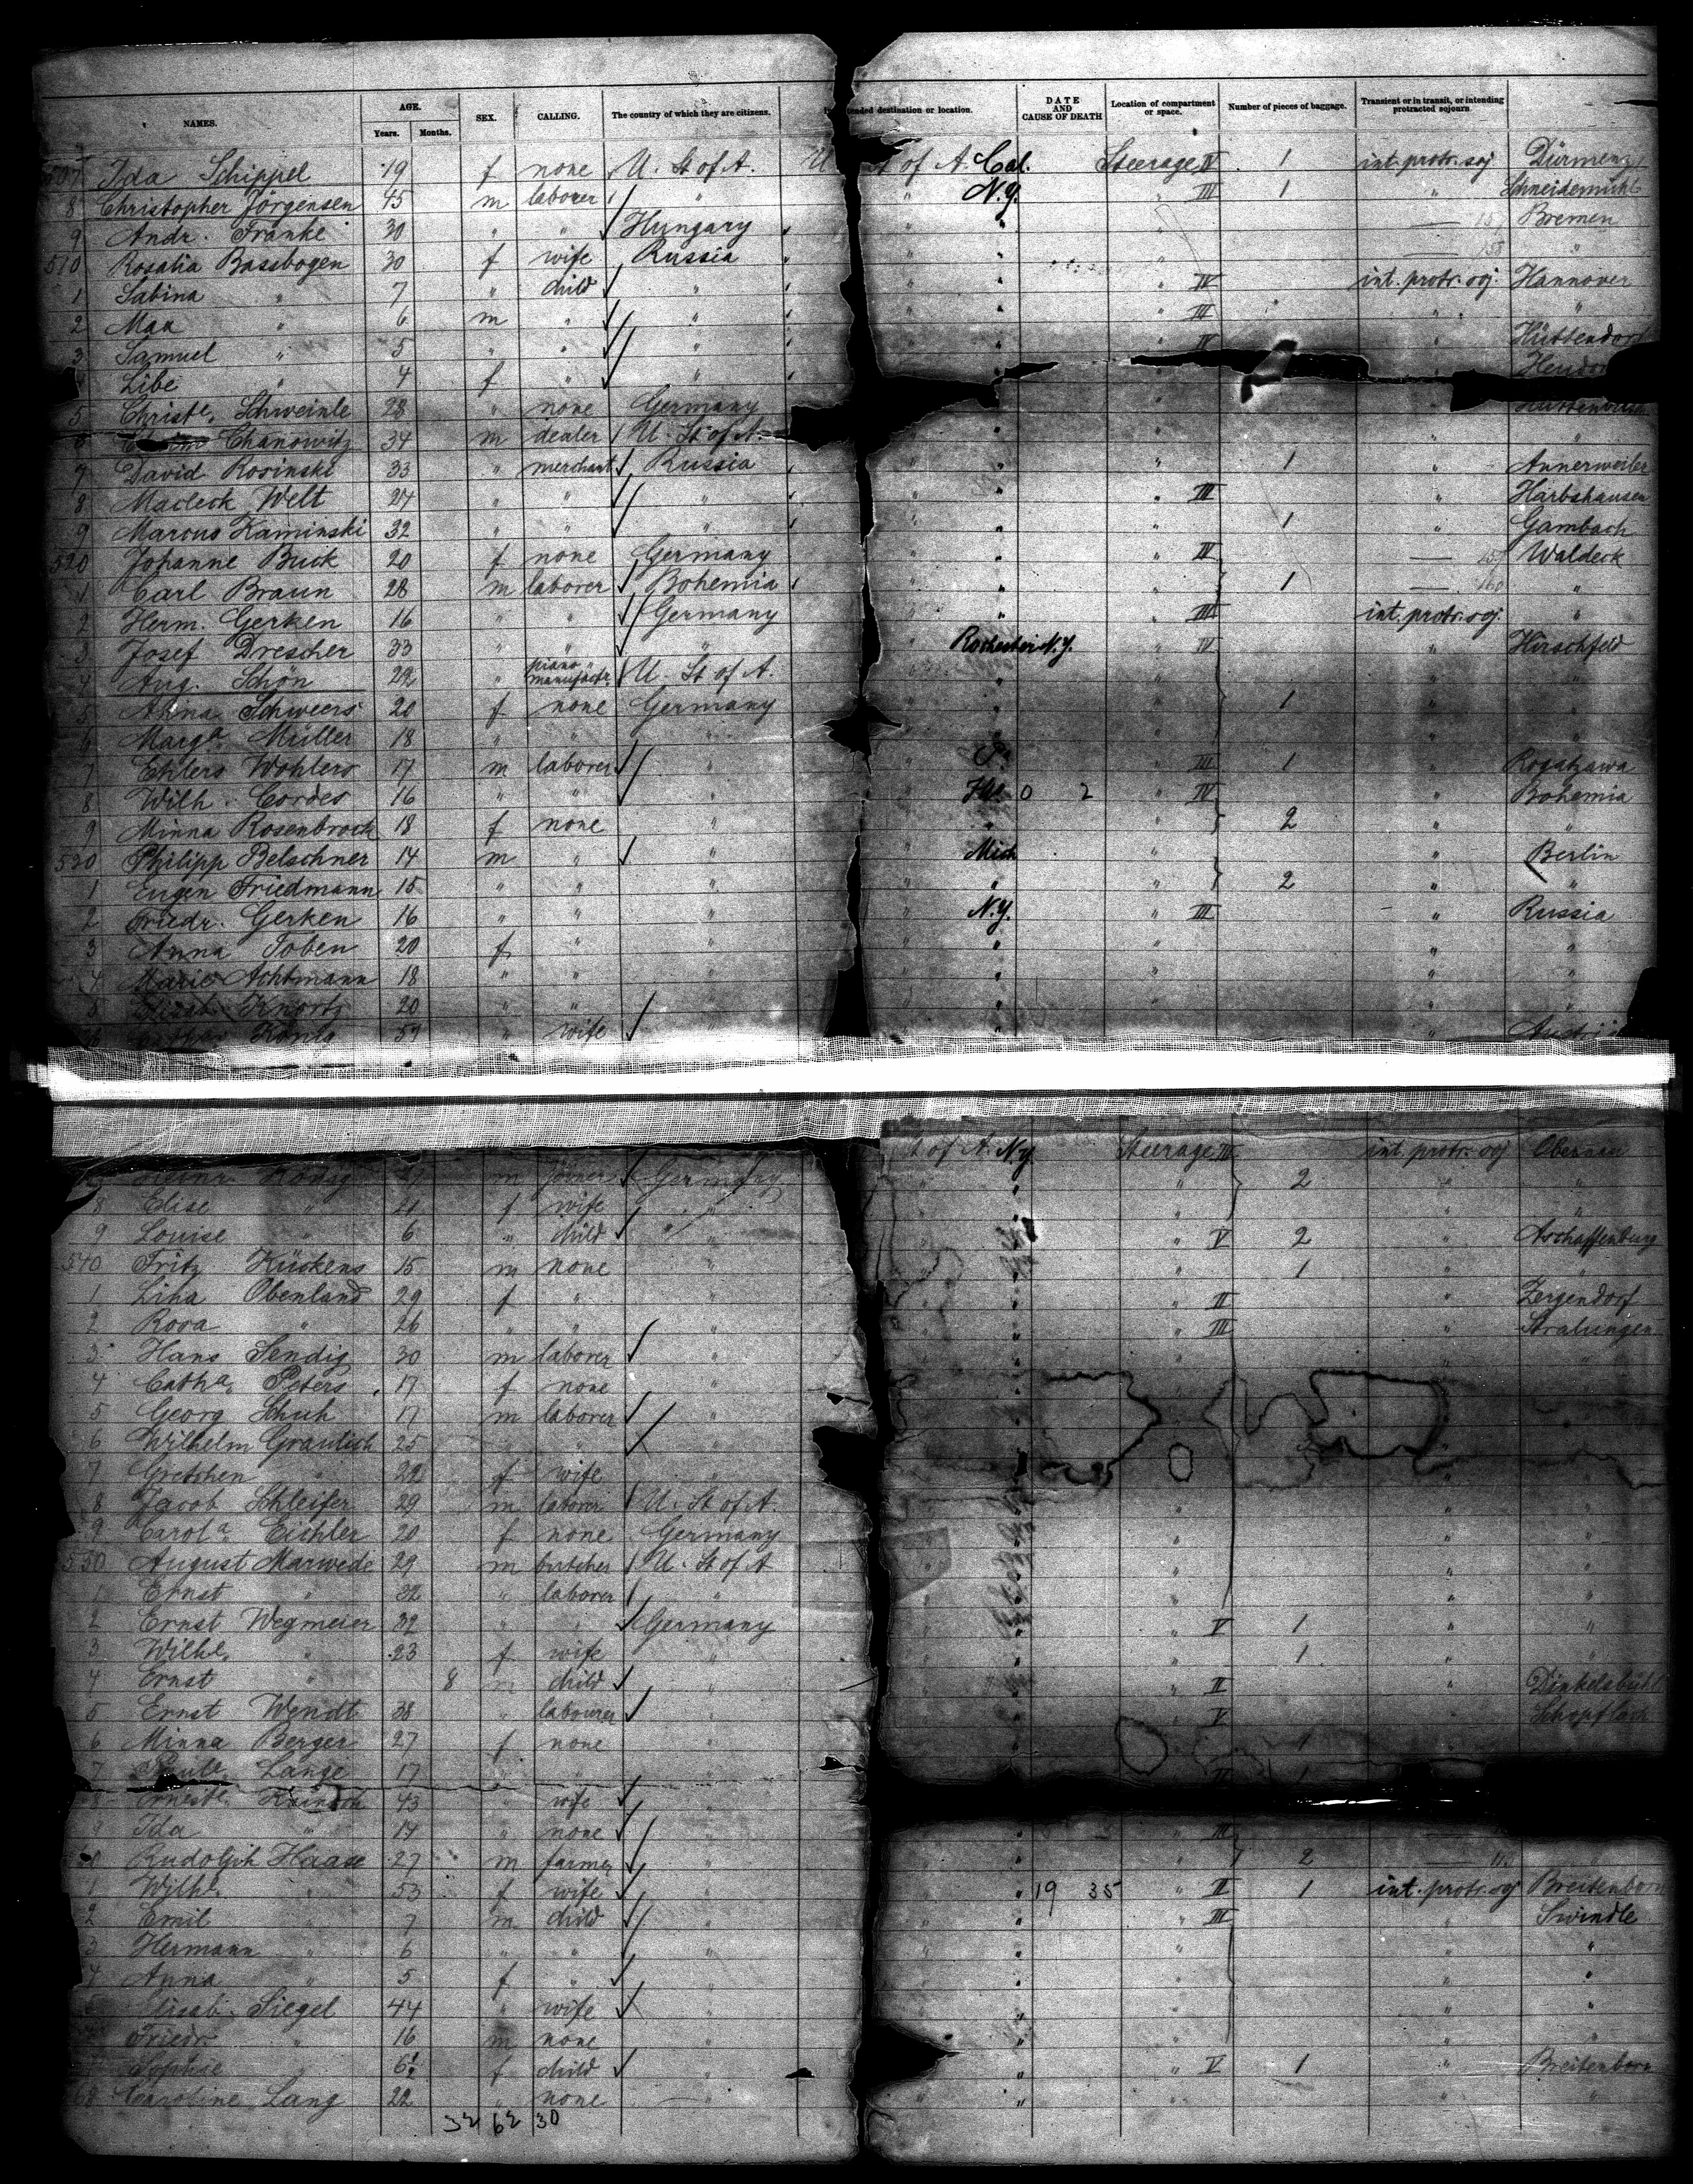 NAMES. AGE. Years. Months. SEX. CALLING. The country of which they are citizens. ended destination or location. DATE AND CAUSE OF DEATH Location of compartment or space. Number of pieces of baggage. Transient or in transit, or intending protracted sojourn
507 Ida Schippel 19 f none U. St of A. U St of A. Cal. Steerage IV 1 int. protr. soj Dürmenz
8 Christopher Jörgensen 45 m laborer " " N.Y. " III 1 " Schneidemühl
9 Andr. Franke 30 " " Hungary " " " — Bremen
510 Rosalia Bassbogen 30 f wife Russia " " " — 158 "
1 Sabina " 7 " child " " " " IV int. protr. soj. Hannover
2 Max " 6 m " " " " " III " "
3 Samuel " 5 " " " " " " IV " Hüttendorf
4 Libe " 4 f " "
5 Christe. Schweinle 28 " none Germany
6 Chanowitz 34 m dealer U. St of A. " " " "
7 David Rosinski 33 " merchant Russia " " " 1 " Annerweiler
8 Macleck Welt 27 " " " " " " III " Harbshausen
9 Marcus Kaminski 32 " " " " " " 1 " Gambach
520 Johanne Buck 20 f none Germany " " " IV — Waldeck
1 Carl Braun 28 m laborer Bohemia " " " 1 — 160 "
2 Herm. Gerken 16 " " Germany " " " III int. protr. soj. "
3 Josef Drescher 33 " " " Rochester N.Y. " IV " Hirschfeld
4 Aug. Schön 29 " piano manufactr. U. St of A. " "
5 Anna Schweers 20 f none Germany " " 1 " "
6 Marga. Müller 18 " " " " " " "
7 Ehlers Wohlers 17 m laborer " " Pa " III 1 " Rogatzawa
8 Wilh. Cordes 16 " " " " Ill 0 2 " IV " Bohemia
9 Minna Rosenbrock 18 f none " " " " 2 " "
530 Philipp Belschner 14 m " " " Mich " " Berlin
1 Eugen Friedmann 15 " " " " " " 2 " "
2 Friedr. Gerken 16 " " " " N.Y. " III " Russia
3 Anna Toben 20 f " " " " " "
4 Marie Achtmann 18 " " " " " "
5 Elisab. Knortz 20 " " " " " "
König 59 " wife " " " Austria
König m joiner Germany St of A. N.Y. Steerage III int. protr. soj Obernau
8 Elise " 21 f wife " " " 2 " "
9 Louise " 6 " child " " " " "
540 Fritz Kückens 15 m none " " " V 2 " Aschaffenburg
1 Lina Obenland 29 f " " " " 1 " "
2 Rosa " 26 " " " " " II " Zergendorf
3 Hans Sendig 30 m laborer " " " III " Stralungen
4 Catha. Peters 17 f none " " " " "
5 Georg Schuh 17 m laborer " " "
6 Wilhelm Graulich 25 " " " "
7 Gretchen " 22 f wife " "
8 Jacob Schleifer 29 m laborer U. St of A. " " " "
9 Carola. Eichler 20 f none Germany " " " "
550 August Marwede 29 m butcher U. St of A " " " "
1 Ernst " 32 " laborer " " " " "
2 Ernst Wegmeier 32 " " Germany " " V 1 " "
3 Wilhe. " 23 f wife " " " 1 "
4 Ernst " 8 m child " " " II " Dinkelsbühl
5 Ernst Wendt 38 " labourer " " " V " Schopfloch
6 Minna Berger 27 f none " 1
7 Paule. Lange 17 " " " II 1
8 Erneste. 43 " wife "
9 Ida " 14 " none " " " III —
Rudolph Haase 27 m farmer " " " 2 —
1 Wilhe. " 53 f wife " " 19 35 " II 1 int. protr. soj Breitenborn
2 Emil " 7 m child " " " III " Swindle
3 Hermann " 6 " " " " " " "
4 Anna " 5 f " " " " " "
Elisab. Siegel 44 " wife " " " " "
Friedr. " 16 m none " " " "
Sophie " 6 f child " " " V 1 " Breitenborn
68 Caroline Lang 22 " none " " " " "
32 62 30